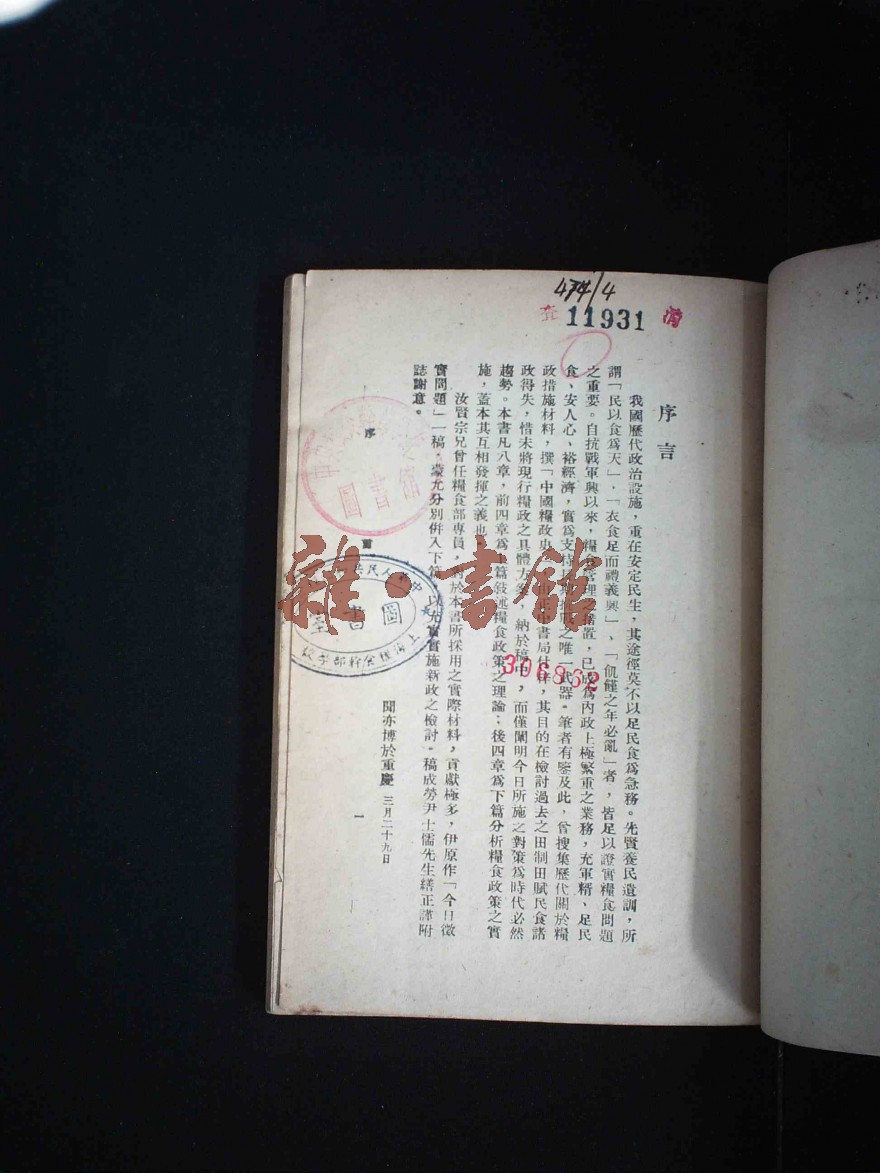 474/4
11931
序言
我國歷代政治設施，重在安定民生，其途徑莫不以足民食爲急務。先賢養民遺訓，所
謂「民以食爲天」，「衣食足而禮義興」、「飢饉之年必亂」者，皆足以證實糧食問題
之重要。自抗戰軍興以來，糧食管理措置，已成爲內政上極繁重之業務，充軍糈、足民
食、安人心、裕經濟，實爲支持之唯一武器。筆者有鑒及此，曾搜集歷代關於糧
政措施材料，撰「中國糧政史書局付梓，其目的在檢討過去之田制田賦民食諸
政得失，惜未將現行糧政之具體方納於稿中，而僅闡明今日所施之對策爲時代必然
趨勢。本書凡八章，前四章爲上篇敍述糧食政策之理論；後四章爲下篇分析糧食政策之實
施，蓋本其互相發揮之義也。
汝賢宗兄曾任糧食部專員，對於本書所採用之實際材料，貢獻極多，伊原作「今日徵
實問題」一稿，蒙允分別併入下篇，以充實實施新政之檢討。稿成勞尹士儒先生繕正謹附
誌謝意。
聞亦博於重慶 三月二十九日
序
一
雜·書館
306862
圖書
圖書